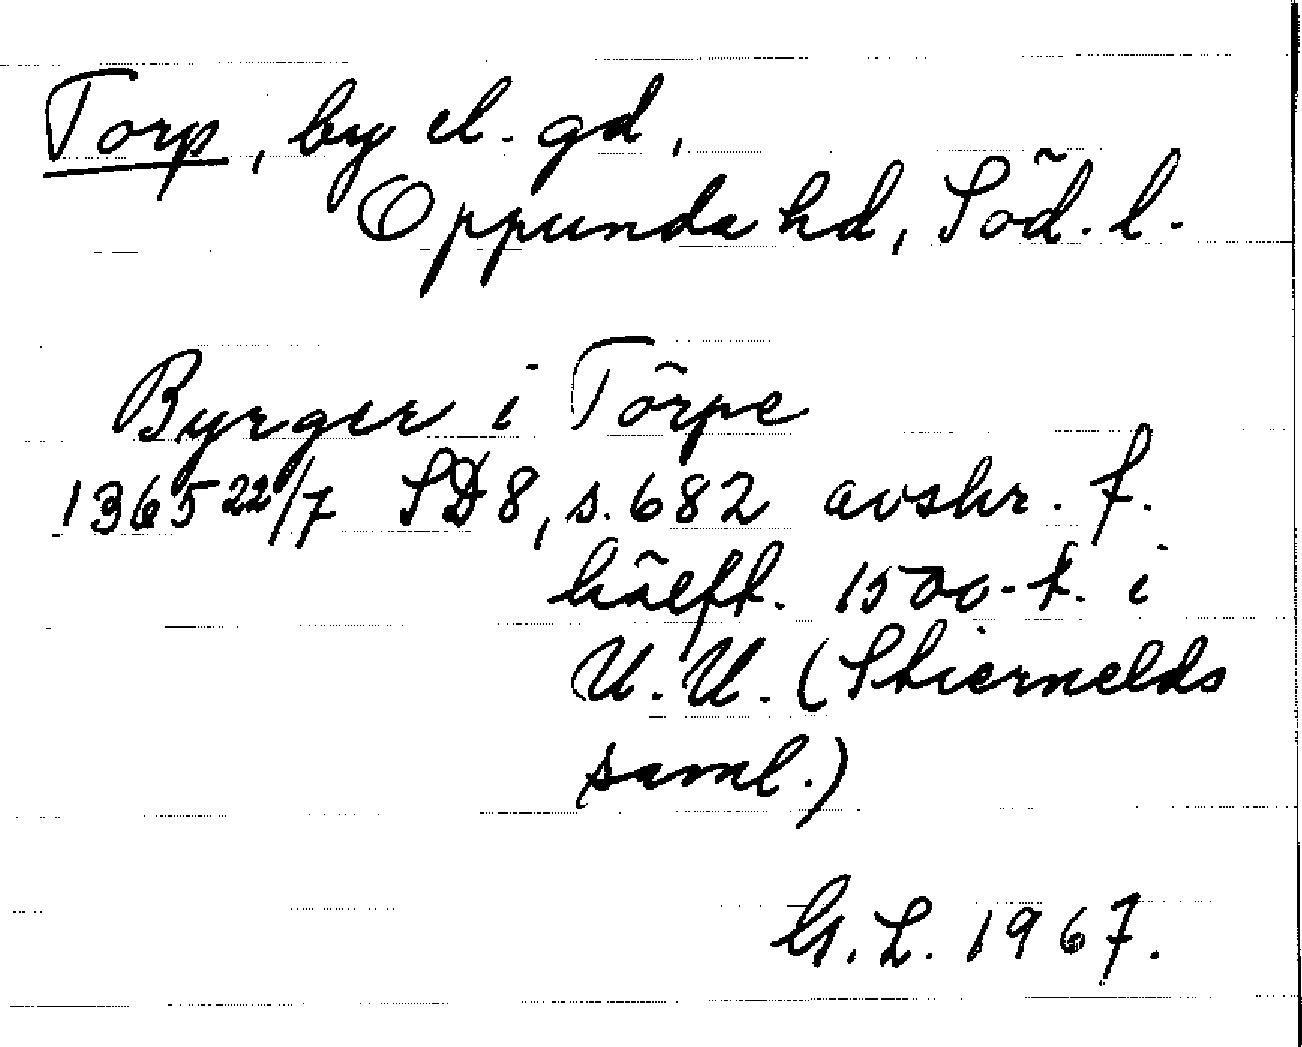 Torp, by el. gd,
Oppunda hd, Söd. l.
Byrger i Törpe
1365 22/7 SD 8, s. 682 avskr. f.
hälft. 1500-t. i
U. U. (Stiernelds
saml.)
G. L. 1967.